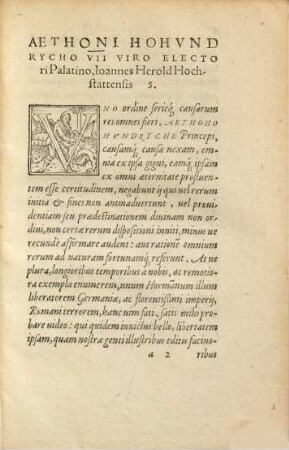 AETHONI HOHVND
RYCHO VII VIRO ELECTO
ri Palatino, Ioannes Herold Hoch-
stattensis S.
VNO ordine serieq́; causarum
res omnes fieri, AETHOHO
HVNDRYCHE Princeps,
causamq́; causæ nexam, om-
nia ex ipsa gigni, eamq́; ipsam
ex omni æternitate profluen-
tem esse certitudinem, negabunt ij qui uel rerum
initia & fines non animaduertunt, uel proui-
dentiam seu prædestinationem diuinam non or-
dini, non certæ rerum dispositioni inniti, minus ue
recunde affirmare audent: aut rationẽ omnium
rerum ad naturam fortunamq́; referunt. At ne
plura, longioribus temporibus a nobis, ac remotio
ra exempla enumerem, unum Hormãnum illum
liberatorem Germaniæ, ac florentissimi imperij,
Romani terrorem, hanc uim fati, satis mihi pro-
bare uideo: qui quidem inuictus bello, libertatem
ipsam, quam nostræ genti illustribus editis facino-
a 2 ribus